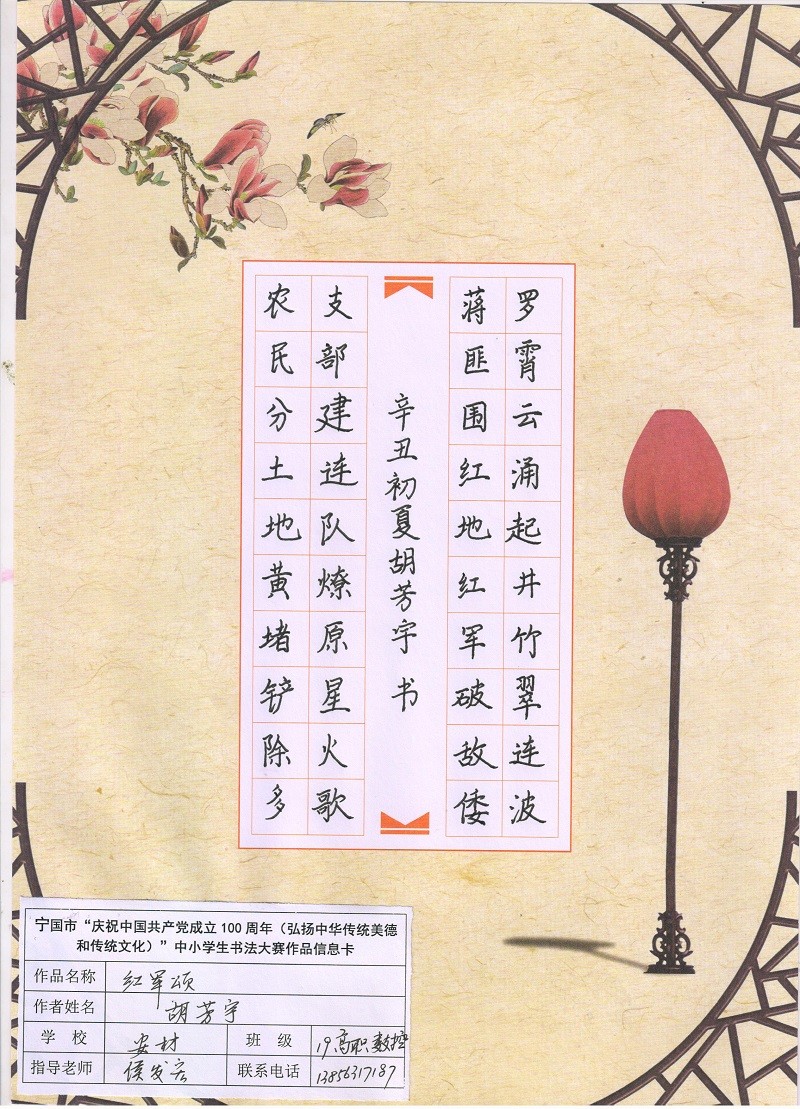 罗霄云涌起井竹翠连波
蒋匪围红地红军破敌倭
辛丑初夏胡芳宇书
支部建连队燎原星火歌
农民分土地黄堵铲除多
宁国市“庆祝中国共产党成立100周年（弘扬中华传统美德
和传统文化）”中小学生书法大赛作品信息卡
作品名称 红军颂
作者姓名 胡芳宇
学 校 安材 班 级 19高职数控
指导老师 侯发宏 联系电话 13856317187